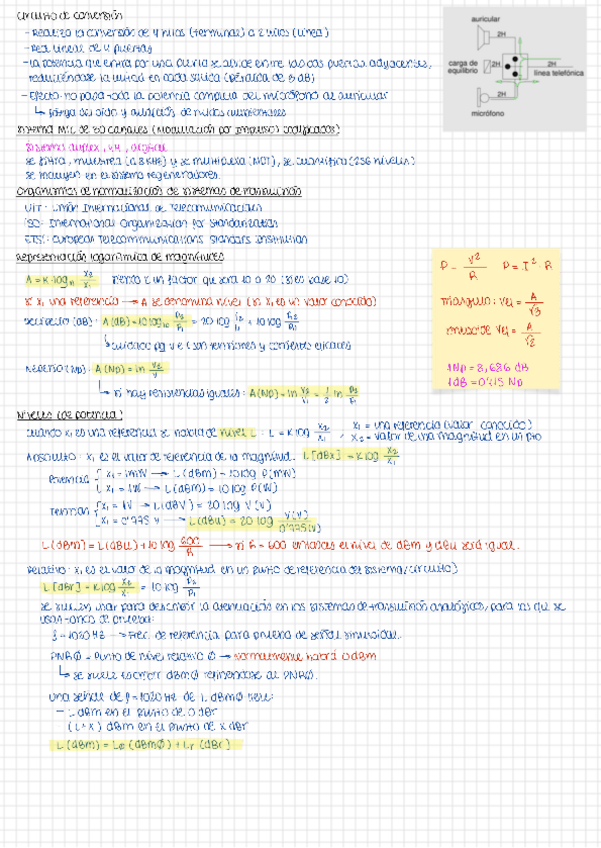 Circuito de conversión
- Realiza la conversión de 4 hilos (terminal) a 2 hilos (línea)
- Red lineal de 4 puertas
- La potencia que entra por una puerta se divide entre las dos puertas adyacentes,
reduciéndose la mitad en cada salida (pérdida de 3 dB)
- Efecto: no pasa toda la potencia completa del micrófono al auricular
↳ fatiga del oído y ruidos ambientales
auricular
2H
carga de equilibrio
2H
2H
línea telefónica
2H
micrófono
Sistema MIC de 30 canales (Modulación por Impulsos Codificados)
Sistema duplex, 4H, digital
Se filtra, muestrea (a 8 KHz) y se multiplexa (MDT), se cuantifica (256 niveles)
Se incluyen en el sistema regeneradores.
Organismos de normalización de sistemas de transmisión
UIT: Unión Internacional de Telecomunicacions
ISO: International Organization for Standarization
ETSI: European Telecommunications Standars Institution
Representación logarítmica de magnitudes
A = K·log x₂/x₁ siendo K un factor que será 10 o 20 (si es base 10)
si x₁ una referencia → A se denomina nivel (si x₁ es un valor conocido)
Decibelio (dB): A(dB) = 10 log₁₀ P₂/P₁ = 20 log
↳ cuidado pq V e I son tensiones y corrientes eficaces
Neperio (Np): A(Np) = ln
↳ si hay resistencias iguales: A(Np) = ln V₂/V₁ = 1/2 ln P₂/P₁
P = V²/R P = I²·R
triángulo: Vef = A/√3
sinusoide Vef = A/√2
1Np = 8,686 dB
1dB = 0'115 Np
Niveles (de potencia)
Cuando x₁ es una referencia se habla de nivel L: L = K log x₂/x₁, x₁ = una referencia (valor conocido)
x₂ = valor de una magnitud en un pto
Absoluto: x₁ es el valor de referencia de la magnitud. L[dBx] = K log x₂/x₁
Potencias { x₁ = 1mW → L(dBm) = 10 log P(mW)
x₁ = 1W → L(dBm) = 10 log P(W)
Tensión { x₁ = 1V → L(dBV) = 20 log V(V)
x₁ = 0'775 V → L(dBu) = 20 log V(V)/0'775(V)
L(dBm) = L(dBu) + 10 log 600/R → si R = 600 entonces el nivel de dBm y dBu será igual.
Relativo: x₁ es el valor de la magnitud en un punto de referencia del sistema/circuito)
L[dBr] = K log x₂/x₁ = 10 log P₂/P₁
Se suelen usar para describir la atenuación en los sistemas de transmisión analógicos, para los que se
usan tonos de prueba:
f = 1020 Hz → Frec. de referencia para prueba de señal sinusoidal.
PNRØ = Punto de nivel relativo Ø → normalmente habrá 0 dBm
↳ se suele escribir dBmØ refiriéndose al PNRØ.
Una señal de f = 1020 Hz de L dBmØ tiene:
- L dBm en el punto de 0 dBr
(L + X) dBm en el punto de X dBr
L(dBm) = L₀(dBmØ) + Lr (dBr)